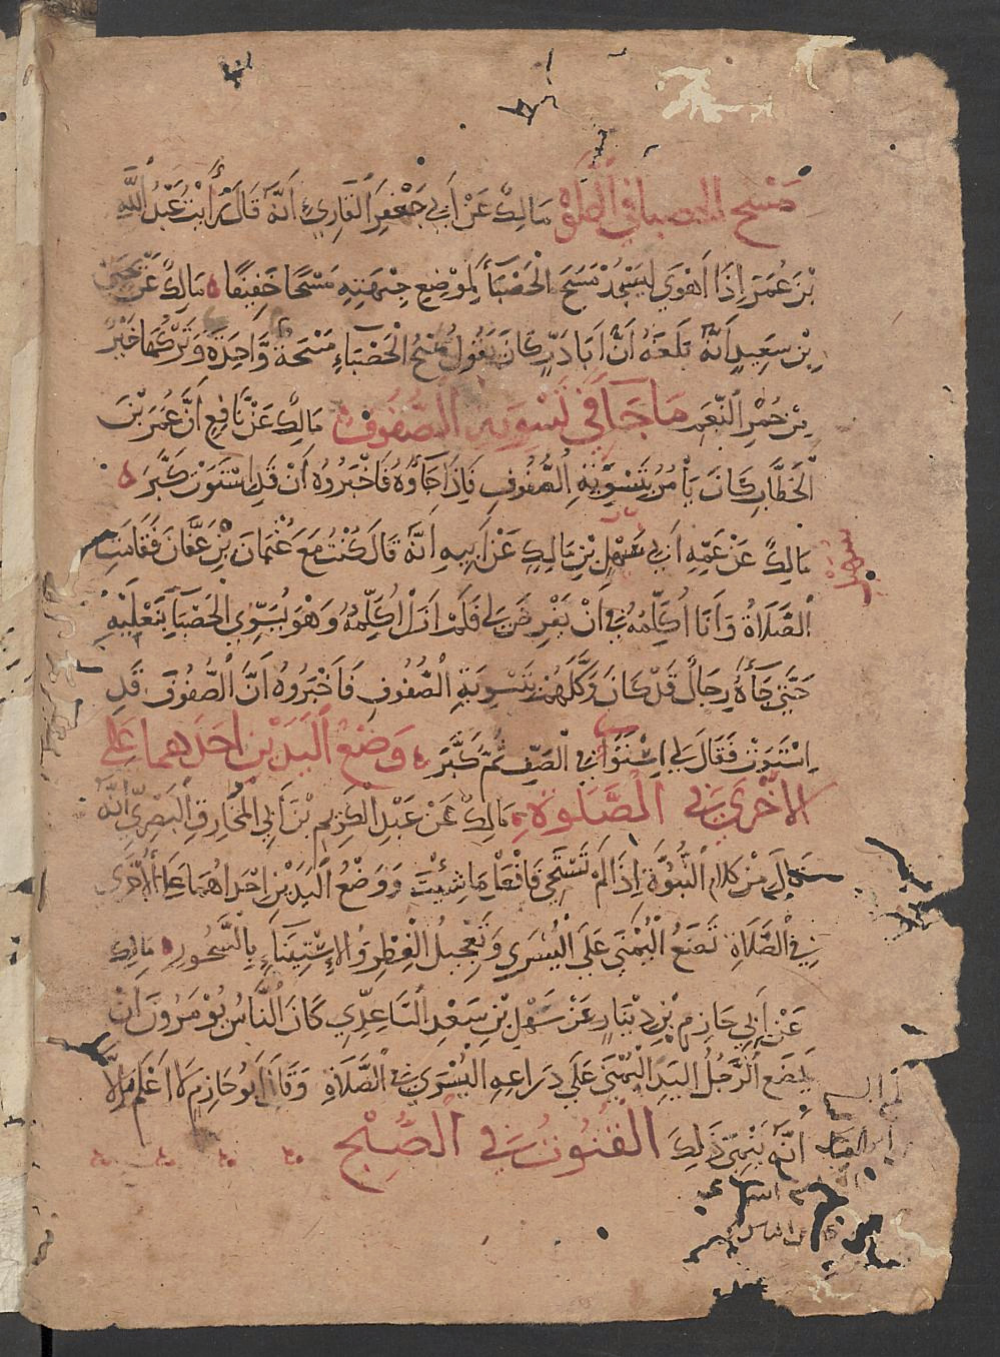 مَسْح الحصباء في الصلوة مَالِكٌ عَنْ أَبِي جَعْفَرٍ الْقَارِيِّ أَنَّهُ قَالَ رَأَيْتُ عَبْدَ اللَّهِ
بْنَ عُمَرَ إِذَا أَهْوَى لِيَسْجُدَ مَسَحَ الْحَصْبَاءَ لِمَوْضِعِ جَبْهَتِهِ مَسْحًا خَفِيفًا ه مَالِكٌ عَنْ يَحْيَى
بْنِ سَعِيدٍ أَنَّهُ بَلَغَهُ أَنَّ أَبَا ذَرٍّ كَانَ يَقُولُ مَسْحُ الْحَصْبَاءِ مَسْحَةً وَاحِدَةً وَتَرْكُهَا خَيْرٌ
مِنْ حُمْرِ النَّعَمِ مَا جَاءَ فِي تَسْوِيَةِ الصُّفُوفِ مَالِكٌ عَنْ نَافِعٍ أَنَّ عُمَرَ بْنَ
الْخَطَّابِ كَانَ يَأْمُرُ بِتَسْوِيَةِ الصُّفُوفِ فَإِذَا جَاؤُهُ فَأَخْبَرُوهُ أَنْ قَدِ اسْتَوَتْ كَبَّرَ ه
مَالِكٌ عَنْ عَمِّهِ أَبِي سُهَيْلِ بْنِ مَالِكٍ عَنْ أَبِيهِ أَنَّهُ قَالَ كُنْتُ مَعَ عُثْمَانَ بْنِ عَفَّانَ فَقَامَتِ
الصَّلَاةُ وَأَنَا أُكَلِّمُهُ فِي أَنْ يَفْرِضَ لِي فَلَمْ أَزَلْ أُكَلِّمُهُ وَهُوَ يُسَوِّي الْحَصْبَاءَ بِنَعْلَيْهِ
حَتَّى جَاءَهُ رِجَالٌ قَدْ كَانَ وَكَّلَهُمْ بِتَسْوِيَةِ الصُّفُوفِ فَأَخْبَرُوهُ أَنَّ الصُّفُوفَ قَدِ
اسْتَوَتْ فَقَالَ لِي اسْتَوِ فِي الصَّفِّ ثُمَّ كَبَّرَ ه وَضْعُ الْيَدَيْنِ احَدَهما عَلَى
الأُخْرَى فِي الصَّلَوةِ مَالِكٌ عَنْ عَبْدِ الْكَرِيمِ بْنِ أَبِي الْمُخَارِقِ الْبَصْرِيِّ أَنَّهُ
قَالَ مِنْ كَلَامِ النُّبُوَّةِ إِذَا لَمْ تَسْتَحِي فَافْعَلْ مَا شِئْتَ وَوَضْعُ الْيَدَيْنِ إِحْدَاهُمَا عَلَى الْأُخْرَى
فِي الصَّلَاةِ تَضَعُ الْيُمْنَى عَلَى الْيُسْرَى وَتَعْجِيلُ الْفِطْرِ وَالْإِسْتِينَاءُ بِالسَّحُورِ ه مَالِك
عَنْ أَبِي حَازِمِ بْنِ دِينَارٍ عَنْ سَهْلِ بْنِ سَعْدٍ السَّاعِدِيِّ كَانَ النَّاسُ يُؤْمَرُونَ أَنْ
يَضَعَ الرَّجُلُ الْيَدَ الْيُمْنَى عَلَى ذِرَاعِهِ الْيُسْرَى فِي الصَّلَاةِ وَقَالَ أَبُو حَازِمٍ لَا أَعْلَمُ إِلَّا
أَنَّهُ يَنْمِي ذَلِكَ الْقُنُوتُ فِي الصُّبْحِ